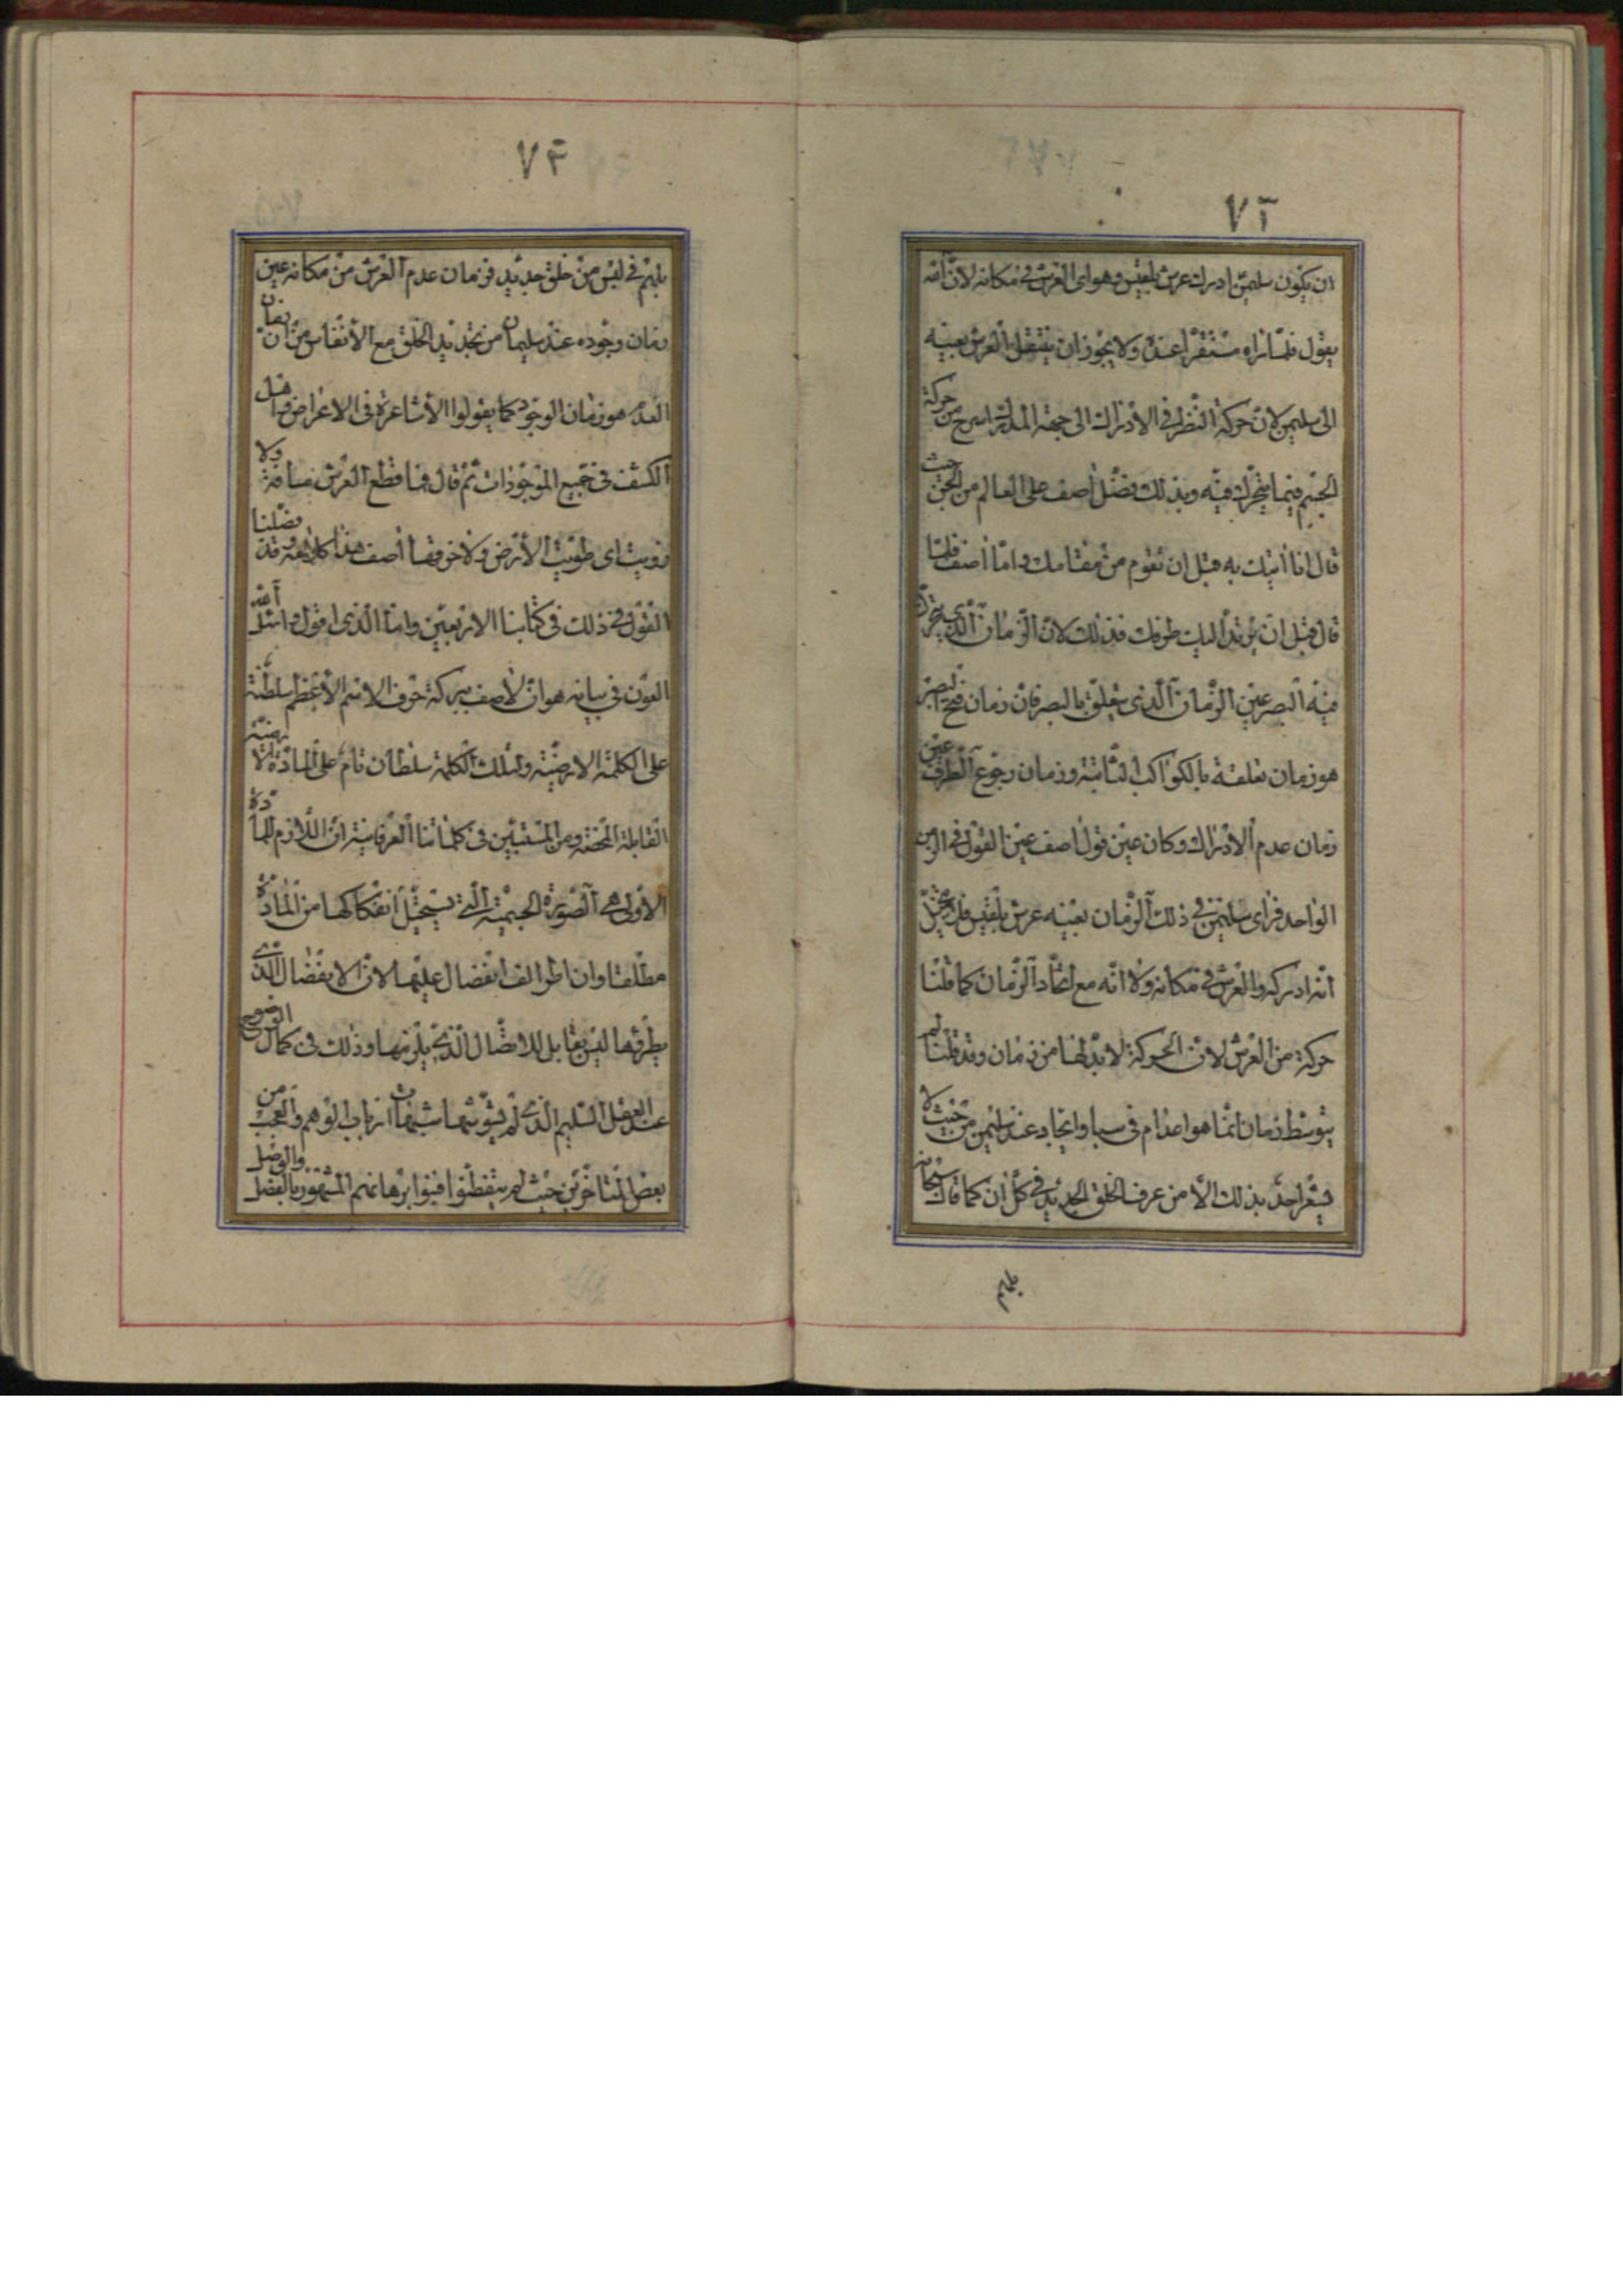 ٧٢
ان يكون سليمن ادرك عرش بلقيس وهو اى العرش فى مكانه لان الله
يقول فلما راه مستقرا عنده ولا يجوز ان ينتقل العرش بعينه
الى سليمن لان حركة النظر فى الادراك الى جهة المدرك اسرع من حركة
الجسم فيما يتحرك فيه وبذلك فضل اصف على العالم من الجن حيث
قال انا اتيك به قبل ان تقوم من مقامك واما اصف فلما
قال قبل ان يرتد اليك طرفك فذلك لان الزمان الذى يتحرك
فيه البصر عين الزمان الذى يتعلق بالبصر فان زمان فتح البصر
هو زمان تعلقه بالكواكب الثابتة وزمان رجوع الطرف عين
زمان عدم الادراك وكان عين قول اصف عين القول فى الزمن
الواحد فراى سليمن فى ذلك الزمان بعينه عرش بلقيس فلم يتخيل
انه ادركه والعرش فى مكانه ولا انه مع اتحاد الزمان كما قلنا
حركة من العرش لان الحركة لا بد لها من زمان وقد قلنا لم
يتوسط زمان انما هو اعدام فى سبا وايجاد عند سليمن من حيث لا
يشعر احد بذلك الا من عرف الخلق الجديد فى كل ان كما قال سبحانه
بل هم
٧٣
بل هم فى لبس من خلق جديد فزمان عدم العرش من مكانه عين
زمان وجوده عند سليمان من تجديد الخلق مع الانفاس من ان زمان
العدم هو زمان الوجود كما يقولوا الاشاعرة فى الاعراض واهل
الكشف فى جميع الموجودات ثم قال فما قطع العرش مسافة ولا
زويت اى طويت الارض ولا خرقها اصف هذا كلامه وقد فصلنا
القول فى ذلك فى كتابنا الاربعين واما الذى اقول واسئل الله
العون فى بيانه هو ان لاصف ببركة حرف الاسم الاعظم سلطنة
على الكلمة الارضية ولتلك الكلمة سلطان تام على المادة الارضية
القابلة المحضة ومن المستبين فى كلماتنا العرفانية ان اللازم للمادة
الاولى هى الصورة الجسمية التى يستحيل انفكاكها من المادة
مطلقا وان طرا الف انفصال عليها لان الانفصال الذى
يطرئها ليس يقابل للاتصال الذى يلزمها وذلك فى كمال الوضوح
عند العقل السليم الذى لم يشوشها شبهات ارباب الوهم والعجب من
بعض المتاخرين حيث لم يتفطنوا فبنوا برهانهم المشهور بالفصل والوصل